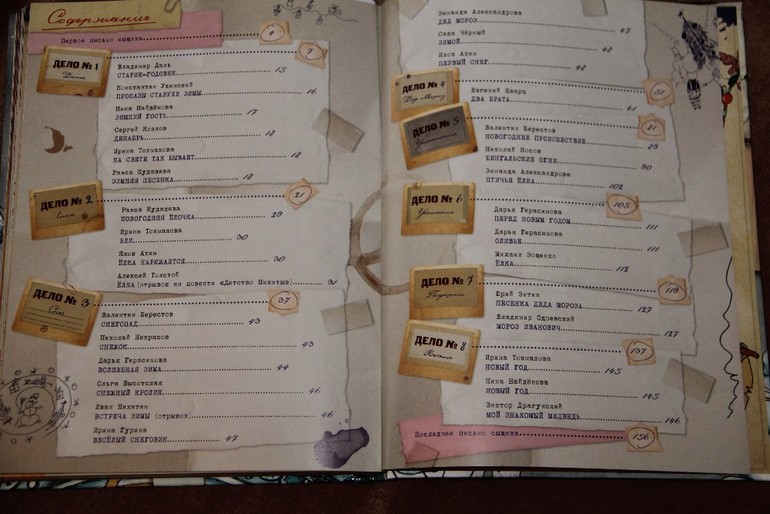 Содержание
Первое письмо сыщика 4
ДЕЛО № 1
7
Владимир Даль
СТАРИК-ГОДОВИК 15
Константин Ушинский
ПРОКАЗЫ СТАРУХИ ЗИМЫ 16
Ника Найдёнова
ЗИМНИЙ ГОСТЬ 17
Сергей Козлов
ДЕКАБРЬ 18
Ирина Токмакова
НА СВЕТЕ ТАК БЫВАЕТ 18
Раиса Кудашева
ЗИМНЯЯ ПЕСЕНКА 18
ДЕЛО № 2
21
Раиса Кудашева
НОВОГОДНЯЯ ЁЛОЧКА 29
Ирина Токмакова
ЕЛИ 30
Яков Аким
ЁЛКА НАРЯЖАЕТСЯ 30
Алексей Толстой
ЁЛКА (отрывок из повести «Детство Никиты») 31
ДЕЛО № 3
Снег
37
Валентин Берестов
СНЕГОПАД 43
Николай Некрасов
СНЕЖОК 43
Дарья Герасимова
ВОЛШЕБНАЯ ЗИМА 44
Ольга Высотская
СНЕЖНЫЙ КРОЛИК 46
Иван Никитин
ВСТРЕЧА ЗИМЫ (отрывок) 46
Ирина Гурина
ВЕСЁЛЫЙ СНЕГОВИК 47
Зинаида Александрова
ДЕД МОРОЗ 47
Саша Чёрный
ЗИМОЙ 48
Яков Аким
ПЕРВЫЙ СНЕГ 48
ДЕЛО № 4
Дед Мороз
51
Евгений Шварц
ДВА БРАТА 61
ДЕЛО № 5
81
Валентин Берестов
НОВОГОДНЕЕ ПРОИСШЕСТВИЕ 89
Николай Носов
БЕНГАЛЬСКИЕ ОГНИ 90
Зинаида Александрова
ПТИЧЬЯ ЁЛКА 102
ДЕЛО № 6
105
Дарья Герасимова
ПЕРЕД НОВЫМ ГОДОМ 111
Дарья Герасимова
ОЛИВЬЕ 111
Михаил Зощенко
ЁЛКА 112
ДЕЛО № 7
Подарки
119
Юрий Энтин
ПЕСЕНКА ДЕДА МОРОЗА 127
Владимир Одоевский
МОРОЗ ИВАНОВИЧ 127
ДЕЛО № 8
137
Ирина Токмакова
НОВЫЙ ГОД 145
Ника Найдёнова
НОВЫЙ ГОД 145
Виктор Драгунский
МОЙ ЗНАКОМЫЙ МЕДВЕДЬ 146
Последнее письмо сыщика 156